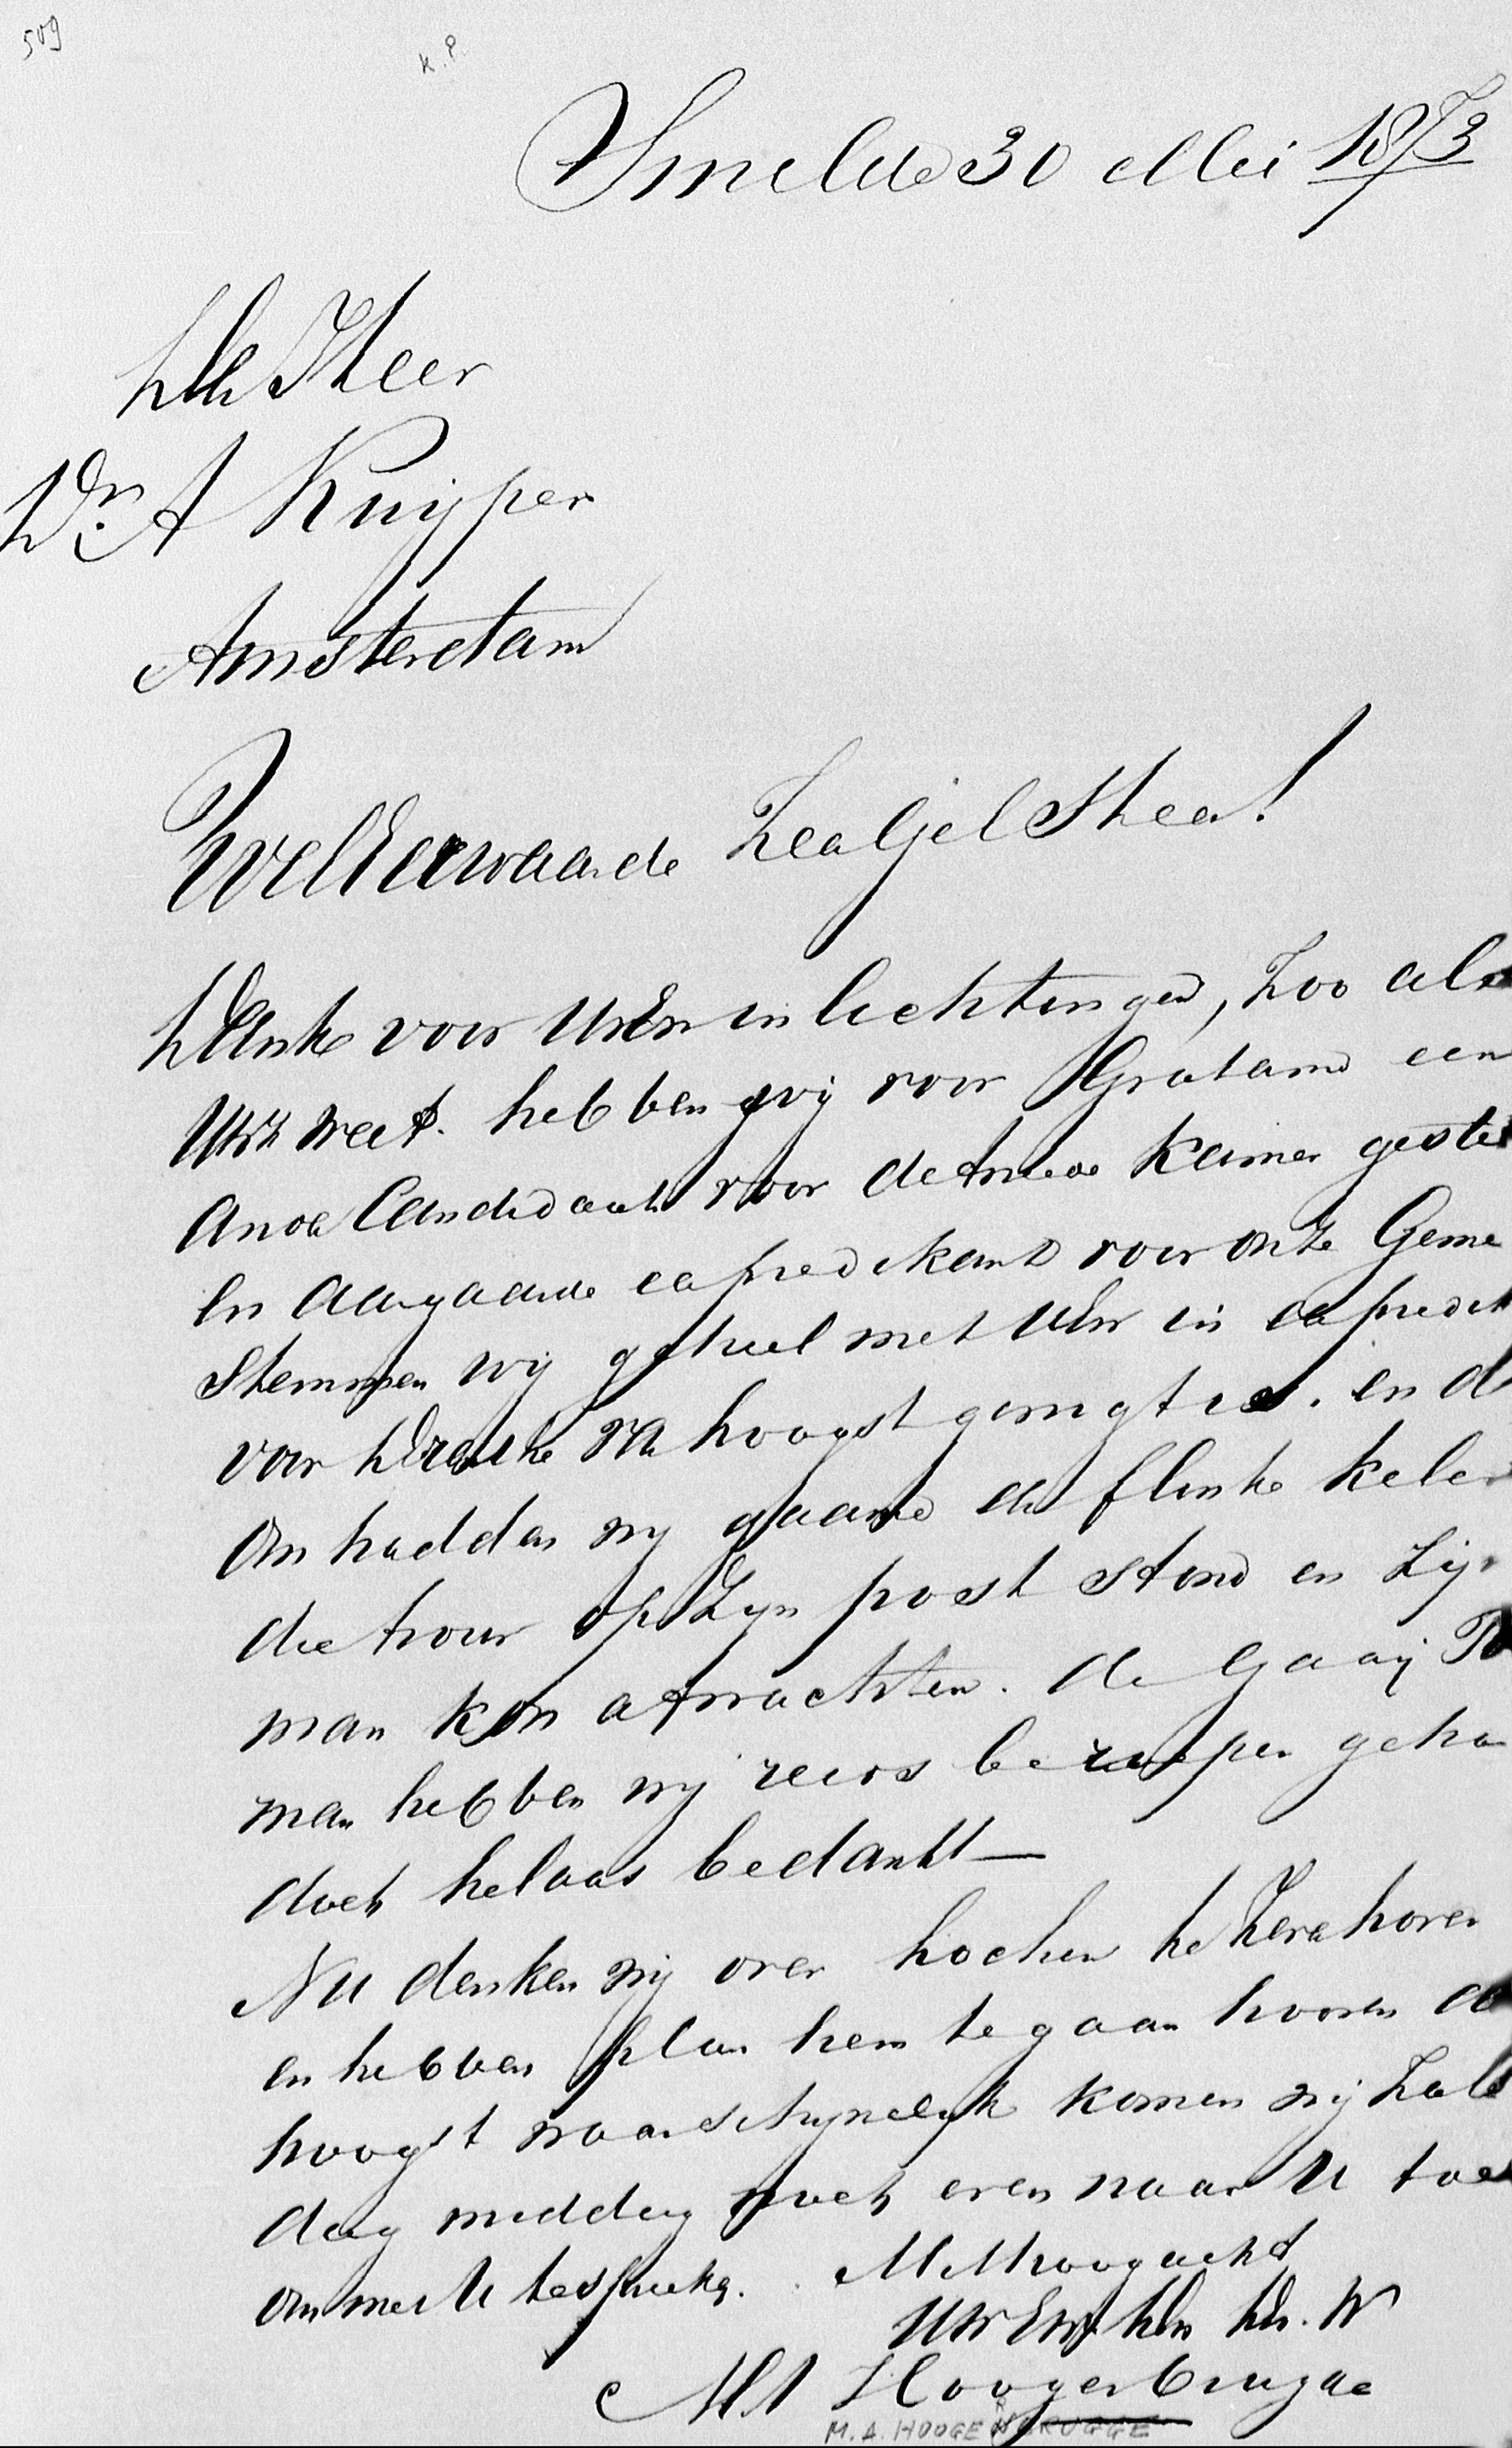 509
K.P.
Smilde 30 Mei 1873
De Heer
Dr. A Kuyper
Amsterdam
WelEerwaarde ZeerGel Heer!
Dank voor UwEw inlichtingen, zoo als
weet. hebben wij voor Gratama een
Candidaat voor de tweede kamer geste
En aangaande een predikant voor onze Geme
Stemmen wij geheel met UEw in
voor Drenthe hoogst gewigt is. en d
Om hadden wij gaarne die flinke
die trouw op Zyn post stond en Zijn
man kon afwachten. de Gaaij
man hebben wij reeds beroepen geha
doch helaas bedankt —
Nu denken wij over te
en hebben plan hem te gaan hooren
hoogst waarschynelyk komen wij Zate
dag middag noch even naar U toe
om met U te spreken. Met hoogacht
UwEw Dw Dr. W
MA Hoogenbrugge
M. A. HOOGENBRUGGE